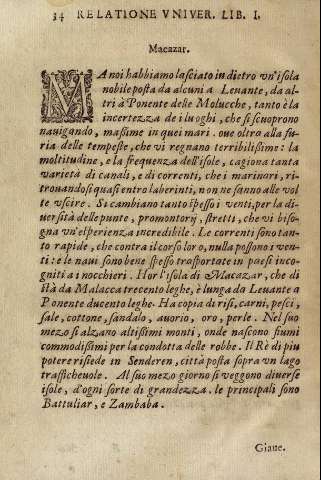 34 RELATIONE VNIVER. LIB. I.
Macazar.
MA noi habbiamo lasciato in dietro vn'isola
nobile posta da alcuni a Leuante, da al-
tri à Ponente delle Molucche, tanto è la
incertezza de i luoghi, che si scuoprono
nauigando, massime in quei mari. oue oltra alla fu-
ria delle tempeste, che vi regnano terribilissime: la
moltitudine, e la frequenza dell'isole, cagiona tanta
varietà di canali, e di correnti, che i marinari, ri-
trouandosi quasi entro laberinti, non ne sanno alle vol
te vscire. Si cambiano tanto spesso i venti, per la di-
uersità delle punte, promontorij, stretti, che vi biso-
gna vn'esperienza incredibile. Le correnti sono tan-
to rapide, che contra il corso loro, nulla possono i ven-
ti: e le naui sono bene spesso trasportate in paesi inco-
gniti a i nocchieri. Hor l'isola di Macazar, che di
stà da Malacca trecento leghe, è lunga da Leuante a
Ponente ducento leghe. Ha copia di risi, carni, pesci,
sale, cottone, sandalo, auorio, oro, perle. Nel suo
mezo si alzano altissimi monti, onde nascono fiumi
commodissimi per la condotta delle robbe. Il Rè di piu
potere risiede in Senderen, città posta sopra vn lago
trafficheuole. Al suo mezo giorno si veggono diuerse
isole, d'ogni sorte di grandezza. le principali sono
Battuliar, e Zambaba.
Giaue.